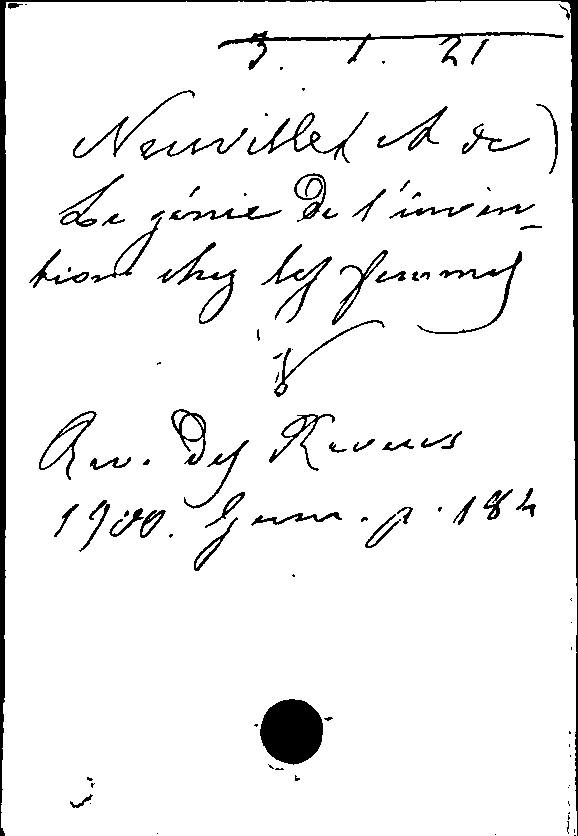 3. 1. 21
Neuville (A de)
Le génie de l'inven-
tion chez les femmes
Rev. des Revues
1900. p. 184